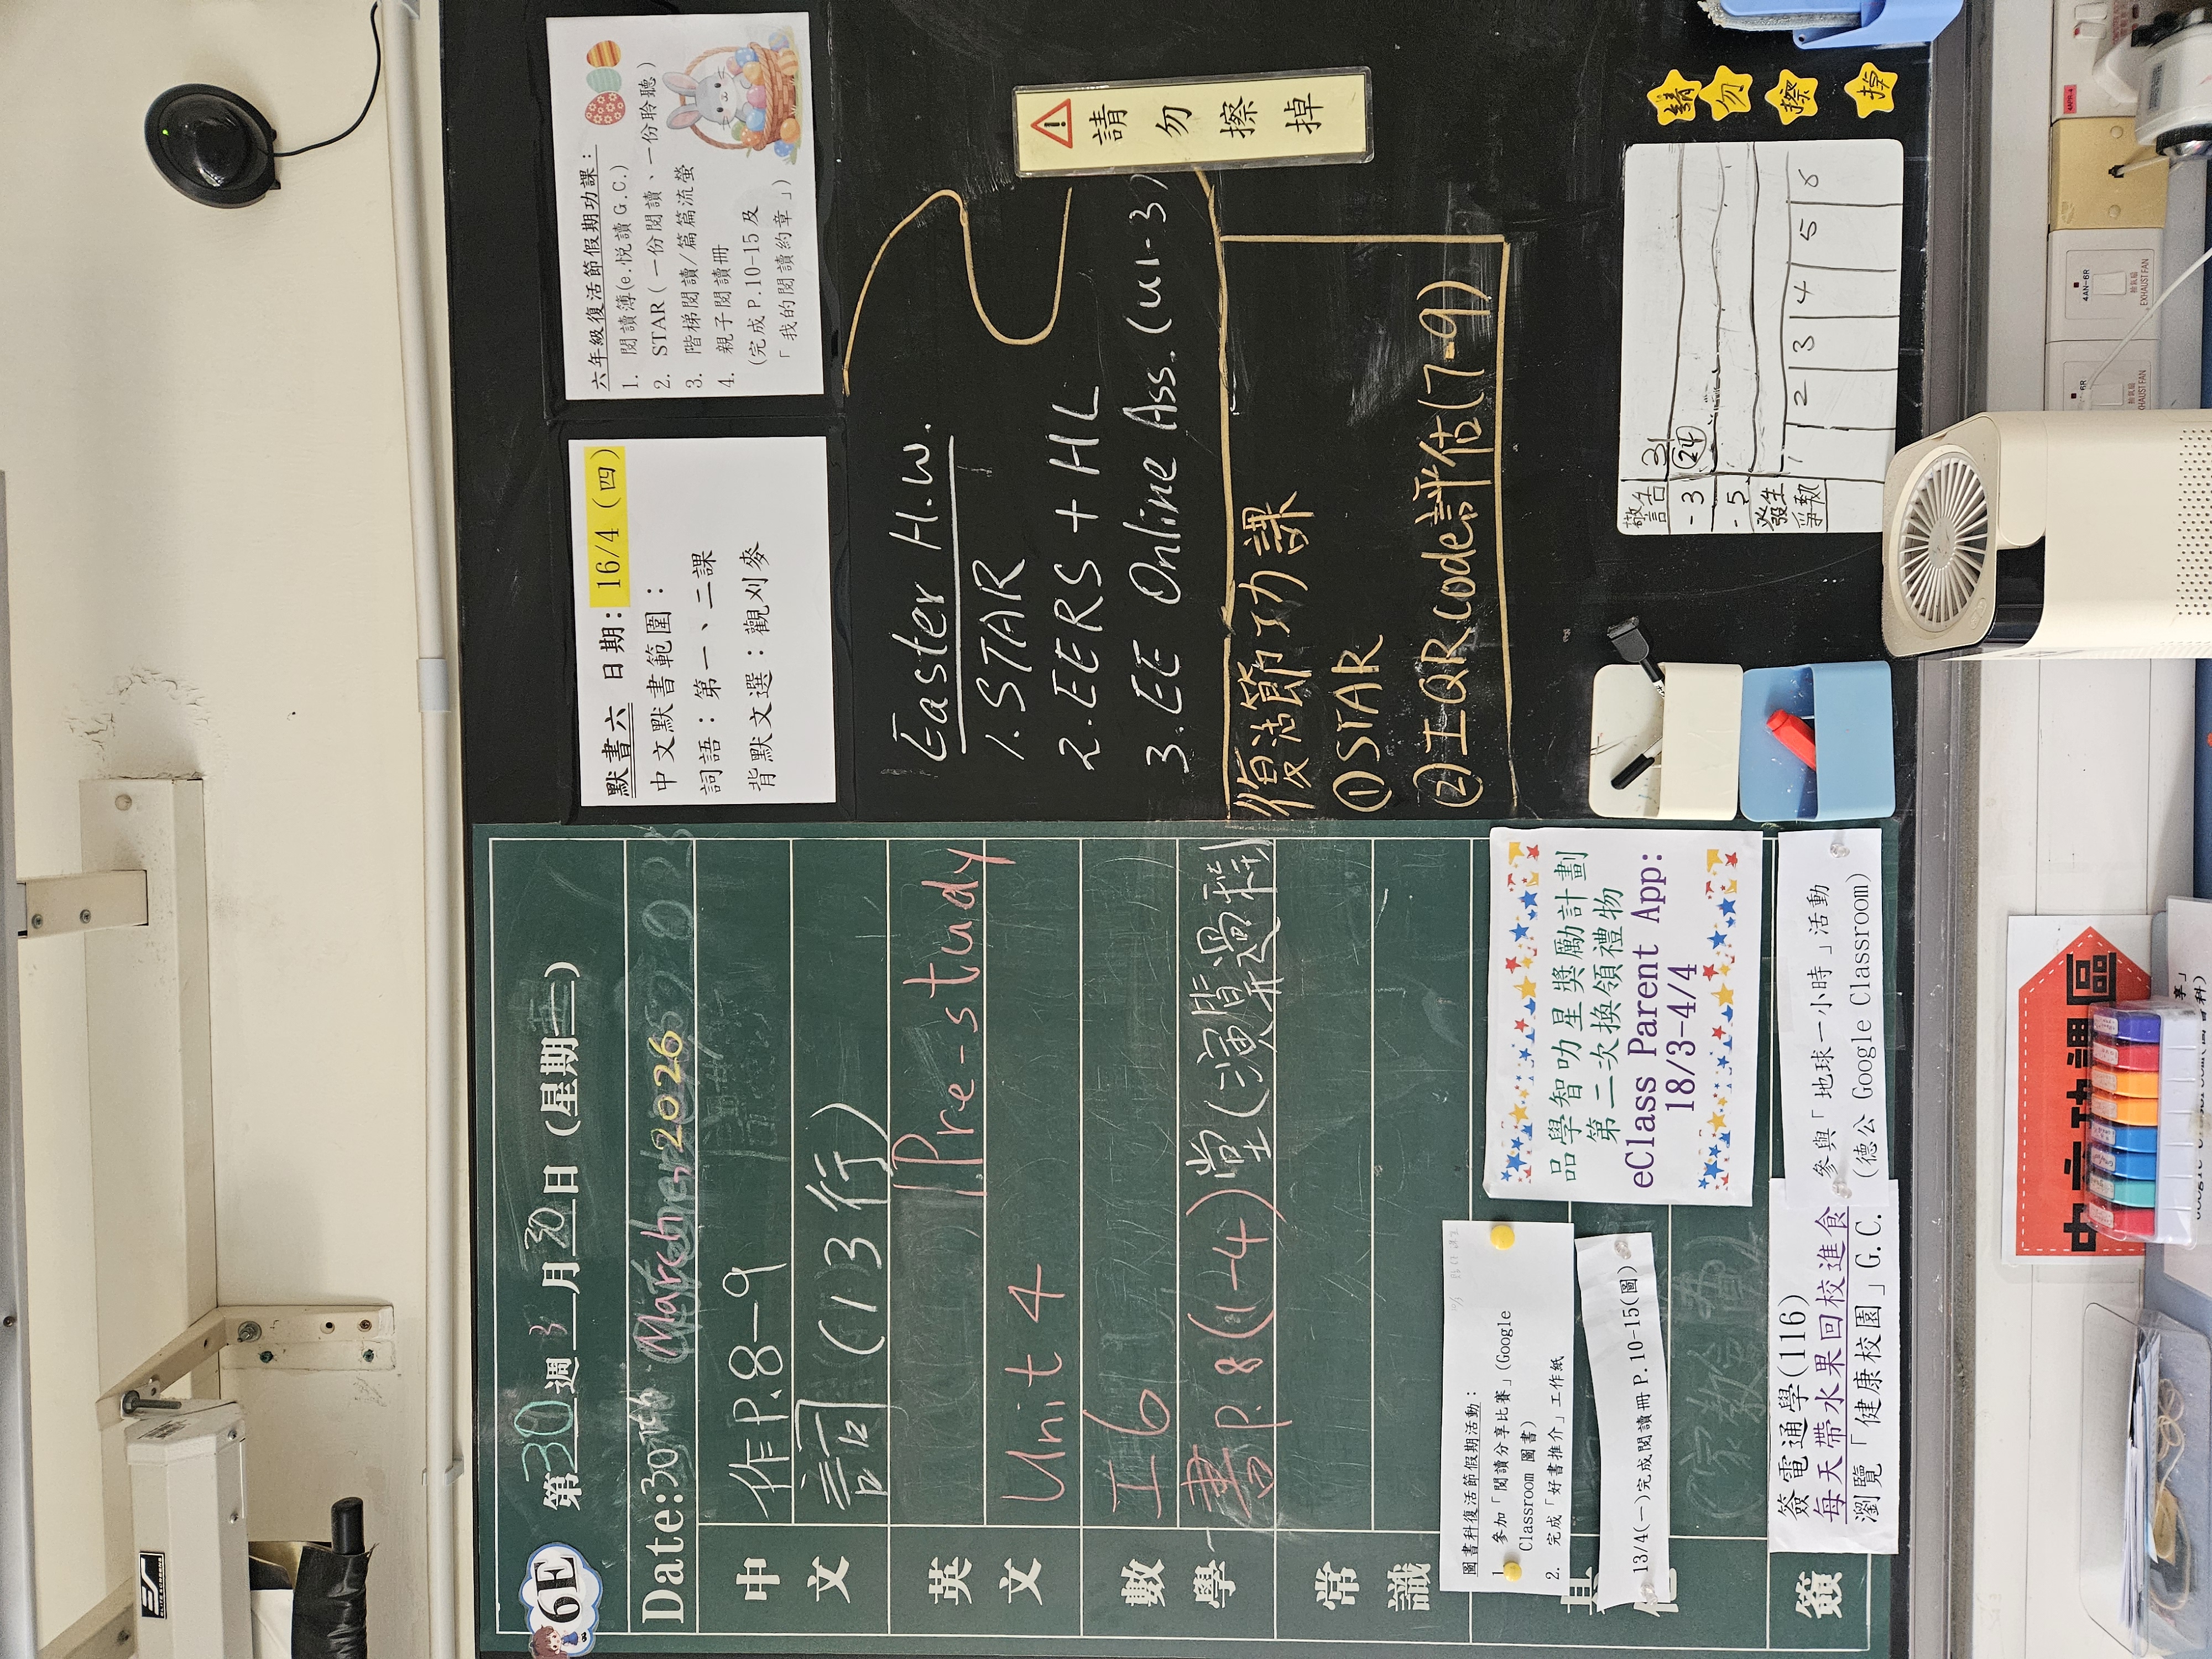 6E
第30週 3月30日(星期一)
Date:30th March, 2026
中文
作P.8-9
詞(13行)
英文
Pre-study
Unit 4
數學
工6
書P.8(1-4)堂(演算過程)
常識
其他
圖書科復活節假期活動：
1. 參加「閱讀分享比賽」(Google
Classroom 圖書)
2. 完成「好書推介」工作紙
13/4(一)完成閱讀冊P.10-15(圖)
品學智叻星獎勵計劃
第二次換領禮物
eClass Parent App:
18/3-4/4
簽
簽電通學(116)
每天帶水果回校進食
瀏覽「健康校園」G.C.
參與「地球一小時」活動
(德公 Google Classroom)
默書六 日期：16/4 (四)
中文默書範圍：
詞語：第一、二課
背默文選：觀刈麥
六年級復活節假期功課：
1. 閱讀簿(e.悅讀G.C.)
2. STAR (一份閱讀、一份聆聽)
3. 階梯閱讀/篇篇流螢
4. 親子閱讀冊
(完成P.10-15及
「我的閱讀約章」)
Easter H.W.
1. STAR
2. EERS + HL
3. EE Online Ass. (u1-3)
復活節功課
①STAR
②工QR code評估(7-9)
請勿擦掉
請勿擦掉
警告 31
-3 24
-5
發生爭執
1 2 3 4 5 6
4AN-6R
EXHAUST FAN
6R
EXHAUST FAN